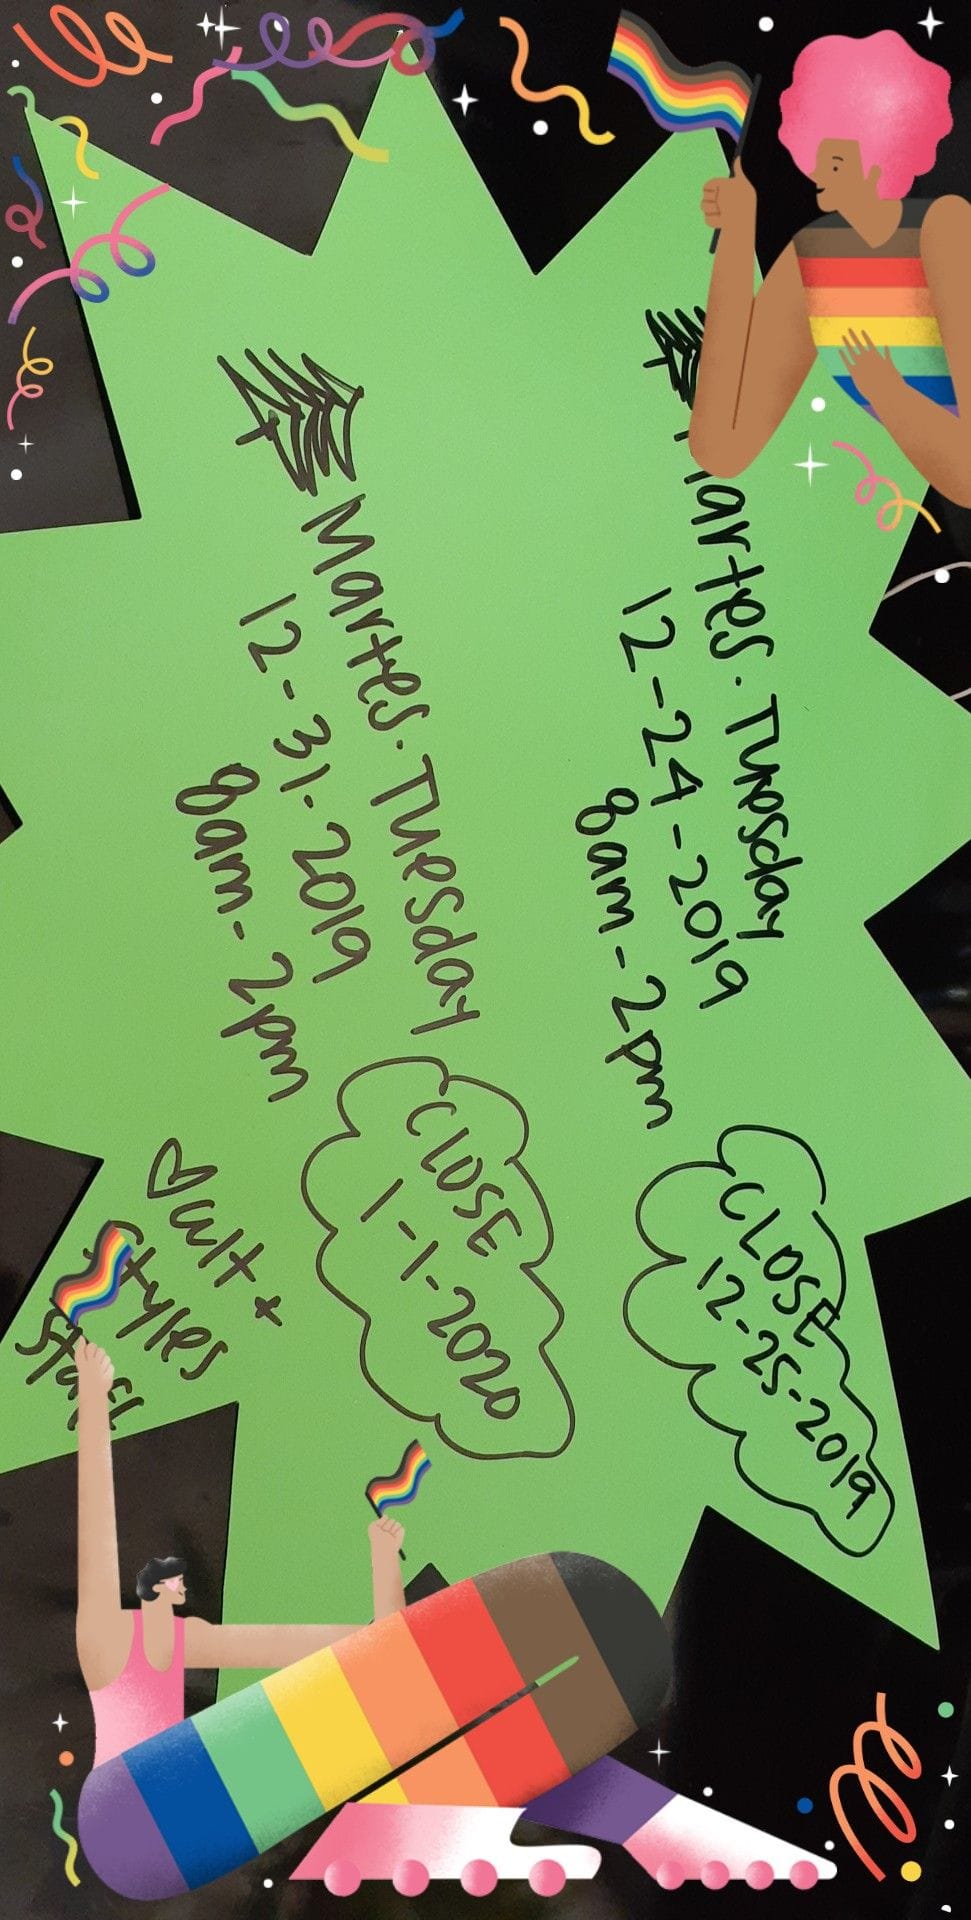 Martes. Tuesday
12-24-2019
8am-2pm
CLOSE
12-25-2019
Martes. Tuesday
12-31-2019
8am-2pm
CLOSE
1-1-2020
+
Styles
Staff